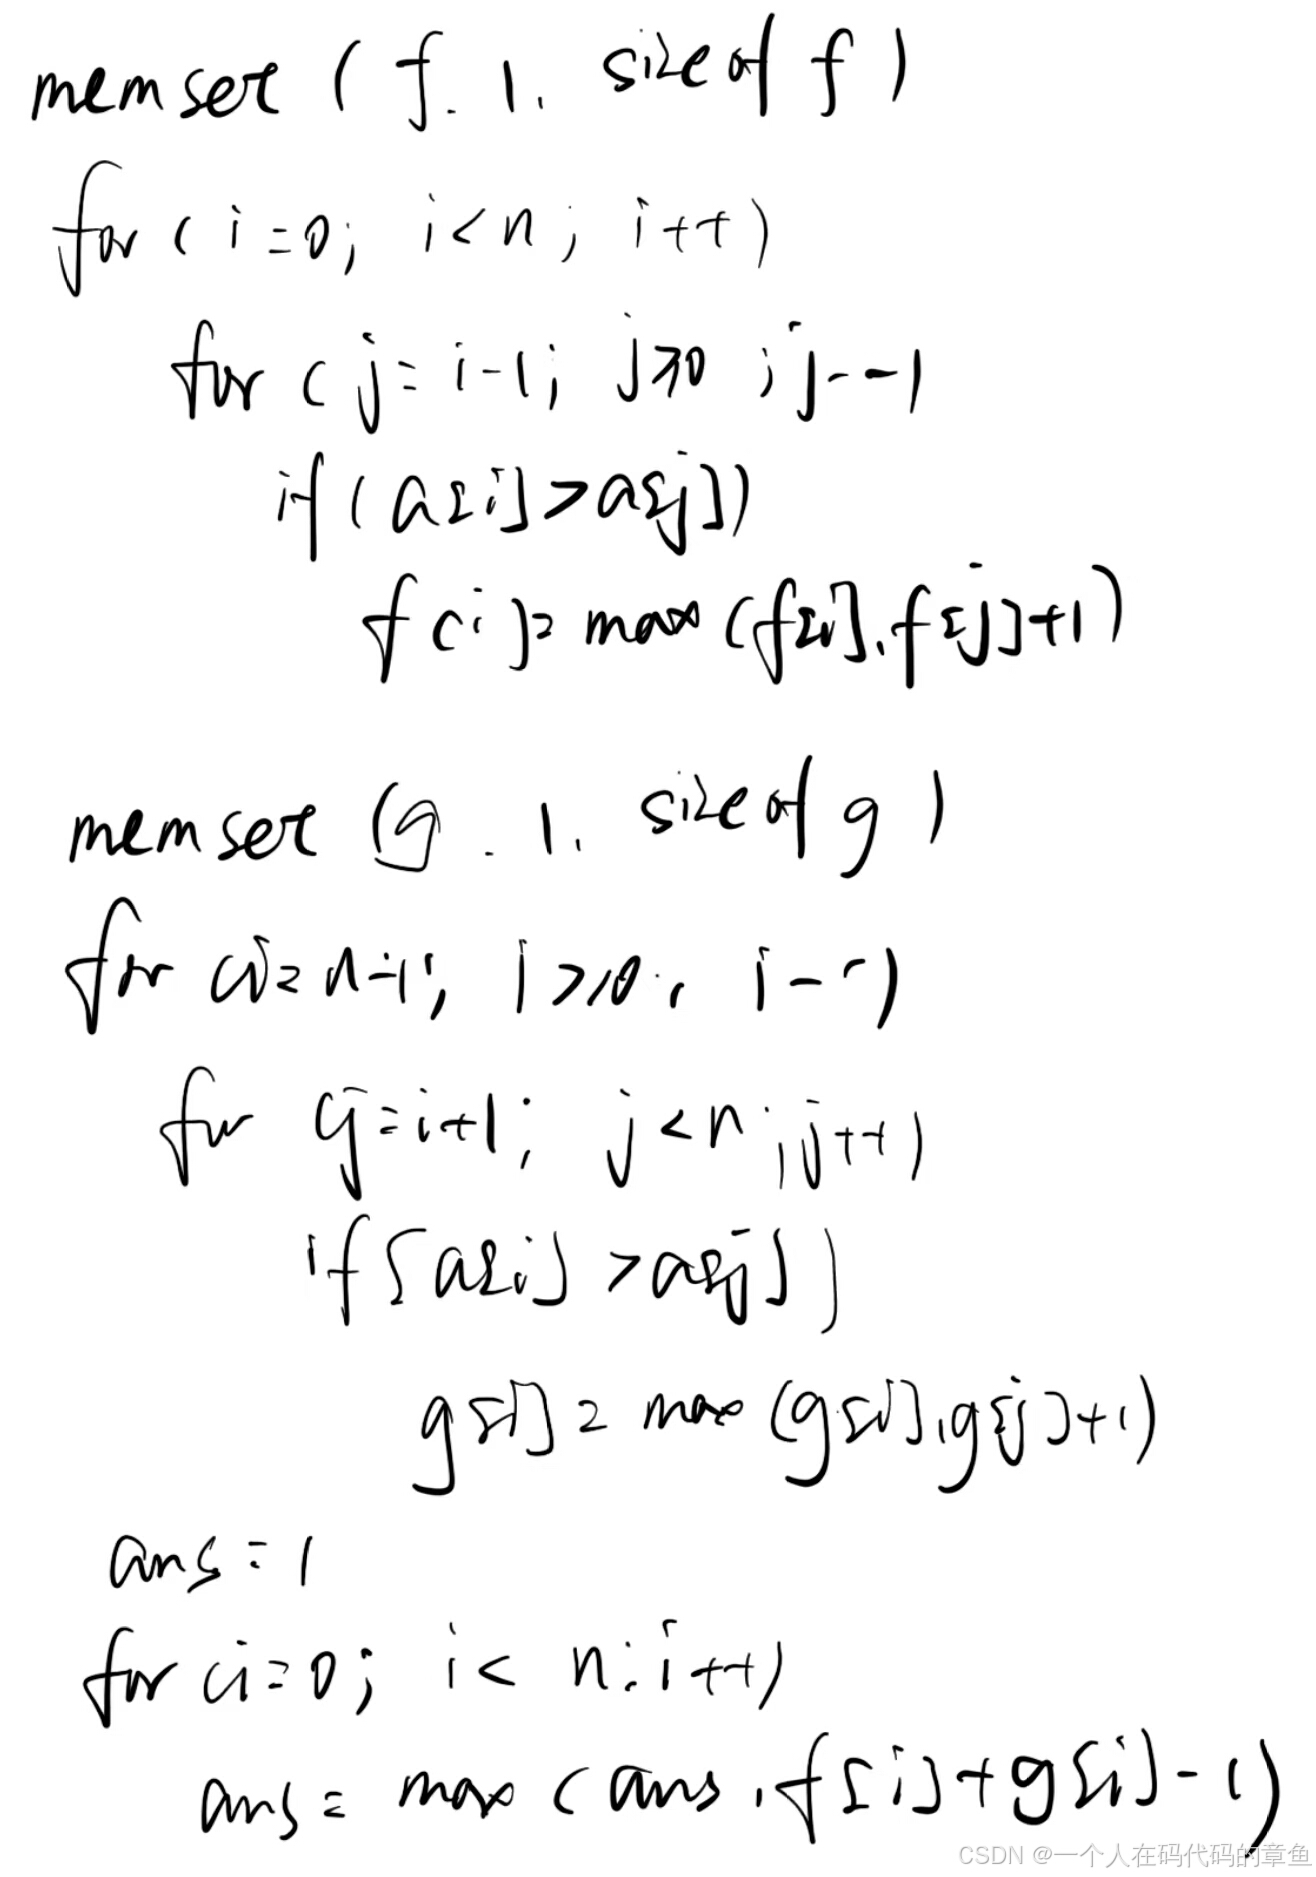 memset ( f, 1, sizeof f )
for ( i=0; i<n; i++)
for ( j= i-1; j≥0 ; j--)
if ( a[i]>a[j])
f[i]= max (f[i], f[j]+1)
memset (g, 1, sizeof g )
for (i= n-1; i≥0; i--)
for (j=i+1; j<n; j++)
if [a[i] >a[j])
g[i]= max (g[i], g[j]+1)
ans=1
for (i=0; i< n; i++)
ans= max ( ans, f[i]+g[i]-1)
CSDN @一个人在码代码的章鱼